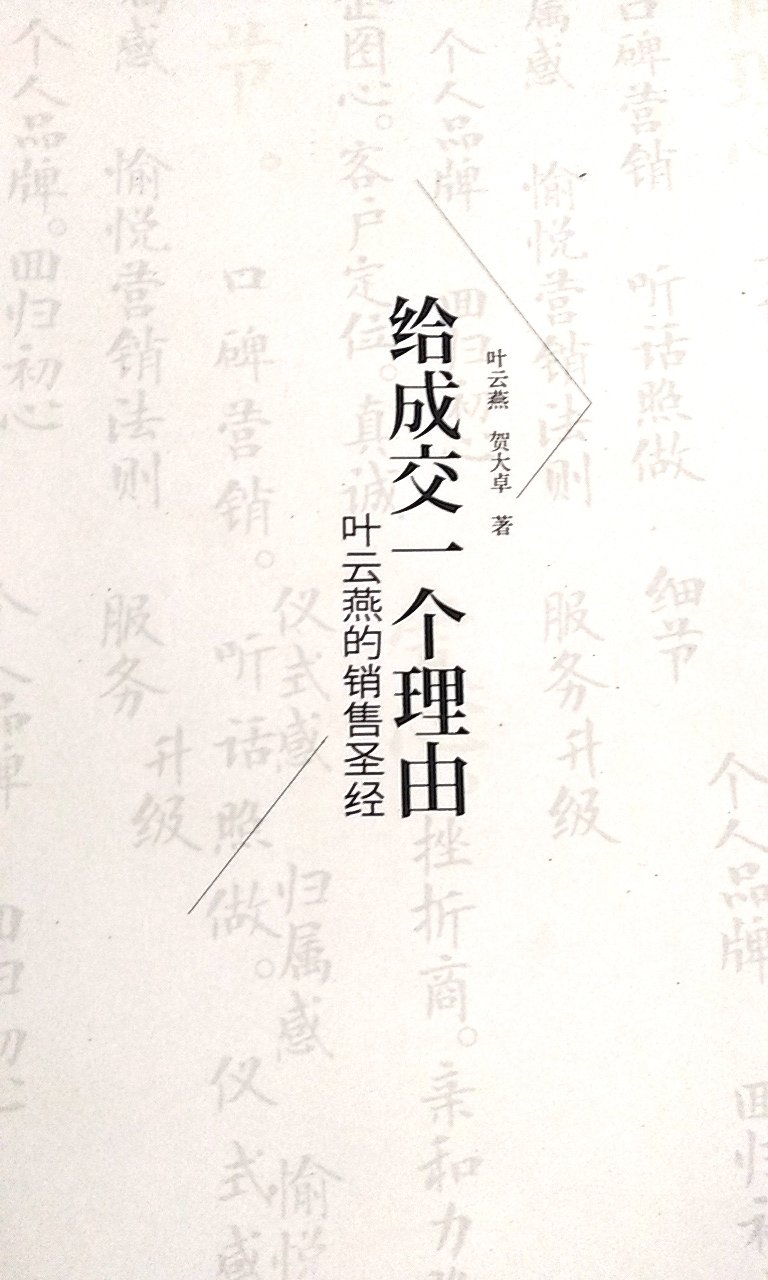 给成交一个理由
叶云燕的销售圣经
叶云燕 贺大卓 著
口碑营销 听话照做 细节
个人品牌
回归初
属感 愉悦营销法则 服务升级
个人品牌
挫折商。亲和力
企图心。客户定位。真诚
仪式感 归属感 愉悦
口碑营销。听话照做。仪式感
属感 愉悦营销法则 服务升级
个人品牌。回归初心
个人品牌
回归初心
节